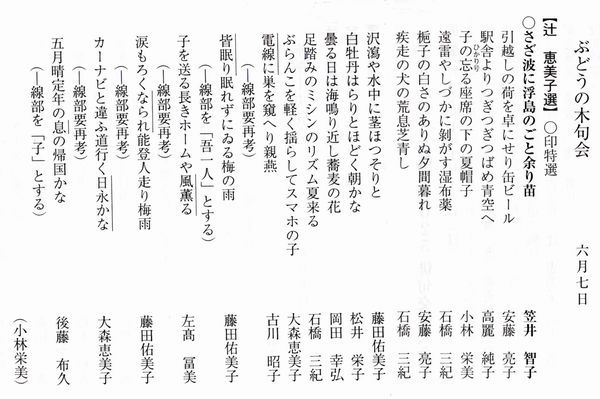 ぶどうの木句会 六月七日
【辻 恵美子選】〇印特選
〇さざ波に浮島のごと余り苗 笠井 智子
引越しの荷を卓にせり缶ビール 安藤 亮子
駅舎よりつぎつぎつばめ青空へ 高麗 純子
子の忘る座席の下の夏帽子 小林 栄美
遠雷やしづかに剥がす湿布薬 石橋 三紀
梔子の白さのありぬ夕間暮れ 安藤 亮子
疾走の犬の荒息芝青し 石橋 三紀
沢瀉や水中に茎ほつそりと 藤田佑美子
白牡丹はらりとほどく朝かな 松井 栄子
曇る日は海鳴り近し蕎麦の花 岡田 幸弘
足踏みのミシンのリズム夏来る 石橋 三紀
ぶらんこを軽く揺らしてスマホの子 大森恵美子
電線に巣を窺へり親燕 古川 昭子
(―線部要再考)
皆眠り眠れずにゐる梅の雨 藤田佑美子
(―線部を「吾一人」とする)
子を送る長きホームや風薫る 左髙 冨美
(―線部要再考)
涙もろくなられ能登人走り梅雨 藤田佑美子
(―線部要再考)
カーナビと違ふ道行く日永かな 大森恵美子
(―線部要再考)
五月晴定年の息の帰国かな 後藤 布久
(―線部を「子」とする)
(小林栄美)